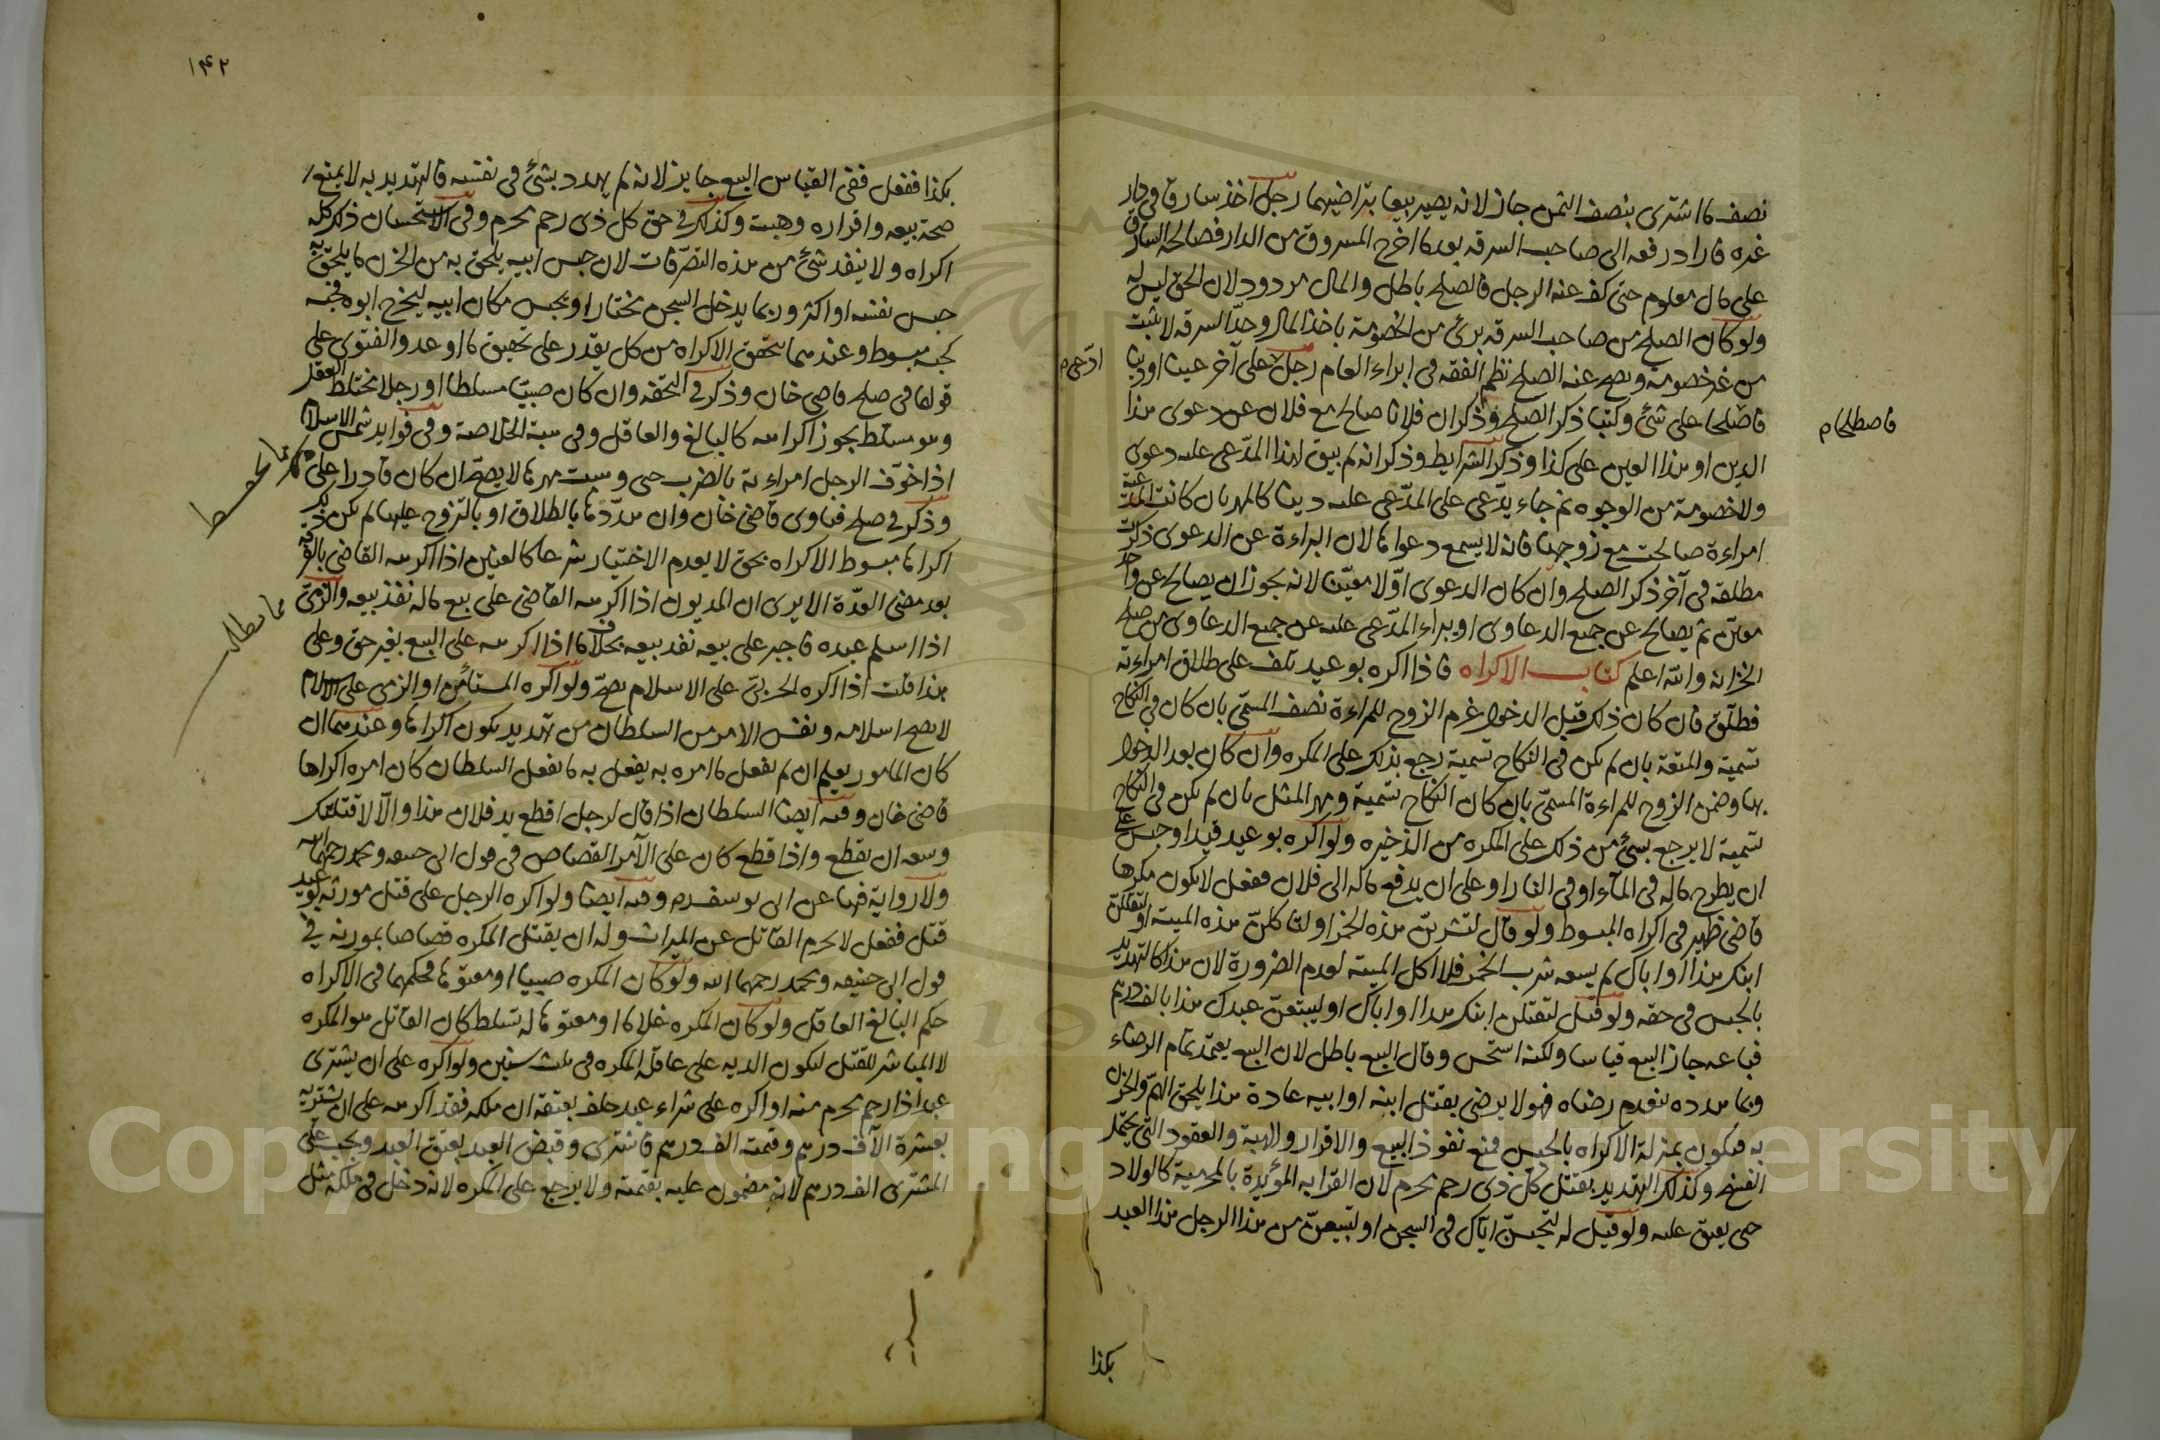 نصف ما اشترى بنصف الثمن جاز لانه يصير بيعا بتراضيهما رجل اخذ سارقا في دار
غيره فاراد رفعه الى صاحب السرقه بعدما اخرج المسروق من الدار فصالحه السارق
على مال معلوم حتى كف عنه الرجل فالصلح باطل والمال مردود لان الحق ليس له
ولو كان الصلح من صاحب السرقه برئ من الخصومة باخذ المال وحد السرقه لا يثبت
من غير خصومة ويصح عنه الصلح نظم الفقه في ابراء العام رجل على آخر عينا او دينا
ادعى م
فاصلحا على شئ وكتبا ذكر الصلح وذكر ان فلانا صالح مع فلان عن دعوى هذا
فاصطلحا م
الدين او هذا العين على كذا وذكر الشرايط وذكر انه لم يبق لهذا المدعى عليه دعوى
ولا خصومة من الوجوه ثم جاء يدعى على المدعى عليه دينا كالمهر بان كانت المدعية
امراءة صالحت مع زوجها فانه لا يسمع دعواها لان البراءة عن الدعوى ذكرت
مطلقه في آخر ذكر الصلح وان كان الدعوى اولا معينا لانه يجوز ان يصالح عن واحد
معين ثم يصالح عن جميع الدعاوى او يبراء المدعى عليه عن جميع الدعاوى من صلح
الخزانه والله اعلم كتاب الاكراه فاذا اكره بوعيد تلف على طلاق امراءته
فطلق فان كان ذلك قبل الدخول غرم الزوج للمراءة نصف المسمى بان كان في النكاح
تسمية والمتعة بان لم يكن في النكاح تسمية رجع بذلك على المكره وان كان بعد الدخول
بها وضمن الزوج للمراءة المسمى بان كان النكاح بتسمية ومهر المثل بان لم يكن في النكاح
تسمية لا يرجع بشئ من ذلك على المكره من الذخيره ولو اكره بوعيد قيد او حبس على
ان يطرح ماله في الماء او في النار او على ان يدفع ماله الى فلان ففعل لا يكون مكرها
قاضى ظهير في اكراه المبسوط ولو قال لتشربن هذه الخمر او لتاكلن هذه الميتة او لتقتلن
ابنك هذا او اباك لم يسعه شرب الخمر فلا اكل الميتة لعدم الضرورة لان هذا كالتهديد
بالحبس في حقه ولو قيل لتقتلن ابنك هذا او اباك او ليبتعن عبدك هذا بالف درهم
فباعه جاز البيع قياسا ولكنه استحسن وقال البيع باطل لان البيع يعتمد تمام الرضاء
وبما هدده ينعدم رضاه فهو لا يرضى بقتل ابنه او ابيه عادة هذا يلحق الهم والحزن
به فيكون بمنزلة الاكراه بالحبس فمنع نفوذ البيع والاقرار والهبة والعقود التي يحتمل
الفسخ وكذلك التهديد بقتل كل ذى رحم محرم لان القرابه المؤبدة بالمحرمية كالولاد
حتى يعتق عليه ولو قيل له لتحبسن اباك في السجن او لتبيعن من هذا الرجل هذا العبد
بكذا
١٤٢
بكذا ففعل ففى القياس البيع جايز لانه لم يهدد بشئ في نفسه فالتهديد به لا يمنع
صحة بيعه واقراره وهبته وكذلك في حق كل ذى رحم محرم وفي الاستحسان ذلك كله
اكراه ولا ينفذ شئ من هذه التصرفات لان حبس ابيه يلحق به من الحزن ما يلحق به
حبس نفسه او اكثر وربما يدخل السجن مختارا ويحبس مكان ابيه ليخرج ابوه فجنه
كجبه مبسوط وعندهما يتحقق الاكراه من كل يقدر على تحقيق ما اوعد والفتوى على
قولهما في صلح قاضى خان وذكر في التحفه وان كان صبيا مسلطا او رجلا مختلط العقل
وهو مسلط يجوز اكراهه كالبالغ والعاقل وفي هبة الخلاصة وفي فوايد شمس الاسلام
اذا خوف الرجل امراءته بالضرب حتى وهبت مهرها لا يصح ان كان قادرا على
وذكر في صلح فتاوى قاضى خان وان هددها بالطلاق او بالتزوج عليها لم يكن ذلك
اكراها مبسوط الاكراه بحق لا يعدم الاختيار شرعا كالعنين اذا اكرهه القاضى بالفرقة
بعد مضى المدة الا يرى ان المديون اذا اكرهه القاضى على بيع ماله نفذ بيعه والذمى
اذا اسلم عبده فاجبر على بيعه نفذ بيعه بخلاف ما اذا اكرهه على البيع بغير حق وعلى
هذا قلت اذا اكره الحربى على الاسلام يصح ولو اكره المستأمن او الذمى على الاسلام
لا يصح اسلامه ونفس الامر من السلطان من تهديد يكون اكراها وعندهما ان
كان المامور يعلم ان لم يفعل ما امره به يفعل به ما يفعل السلطان كان امره اكراها
قاضى خان وفيه ايضا السلطان اذا قال لرجل اقطع يد فلان هذا والا لاقتلنك
وسعه ان يقطع واذا قطع كان على الآمر القصاص في قول ابى حنيفه ومحمد رحمهما الله
ولا رواية فيها عن ابى يوسف رحمه وفيه ايضا ولو اكره الرجل على قتل مورثه بوعيد
قتل ففعل لا يحرم القاتل عن الميراث وله ان يقتل المكره قصاصا بمورثه في
قول ابى حنيفه ومحمد رحمهما الله ولو كان المكره صبيا او معتوها فحكمهما في الاكراه
حكم البالغ العاقل ولو كان المكره غلاما او معتوها له تسلط كان القاتل هو المكره
لا المباشر للقتل لتكون الديه على عاقلة المكره في ثلث سنين ولو اكره على ان يشترى
عبدا ذا رحم محرم منه او اكره على شراء عبد حلف بعتقه ان ملكه فقد اكرهه على ان يشتريه
بعشرة الآف درهم وقيمته الف درهم فاشترى وقبض العبد يعتق العبد ويجب على
المشترى الف درهم لانه مضمون عليه بقيمته ولا يرجع على المكره لانه دخل في ملكه مثل
Copyright © King Saud University